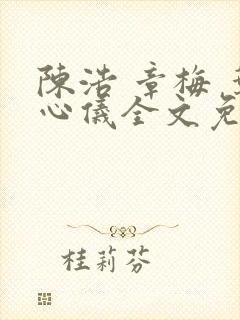 陳浩 章梅
心儀全文免
桂莉芬